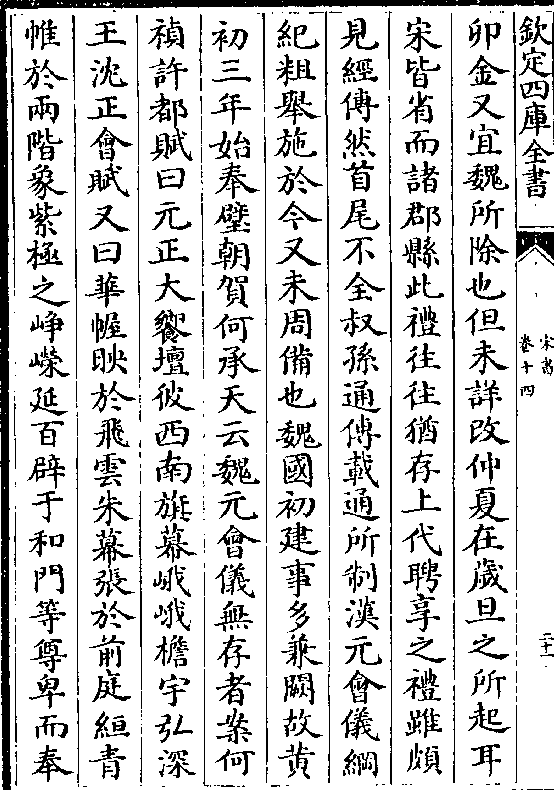 欽定四庫全書
宋書
卷十四
二十一
卯金又宜魏所除也但未詳改仲夏在歲旦之所起耳
宋皆省而諸郡縣此禮往往猶存上代聘享之禮雖頗
見經傳然首尾不全叔孫通傳載通所制漢元會儀綱
紀粗舉施於今又未周備也魏國初建事多兼闕故黄
初三年始奉璧朝賀何承天云魏元會儀無存者案何
禎許都賦曰元正大饗壇彼西南旗幕峨峨檐宇弘深
王沈正會賦又曰華幄映於飛雲朱幕張於前庭絙青
帷於兩階象紫極之崢嶸延百辟于和門等尊卑而奉